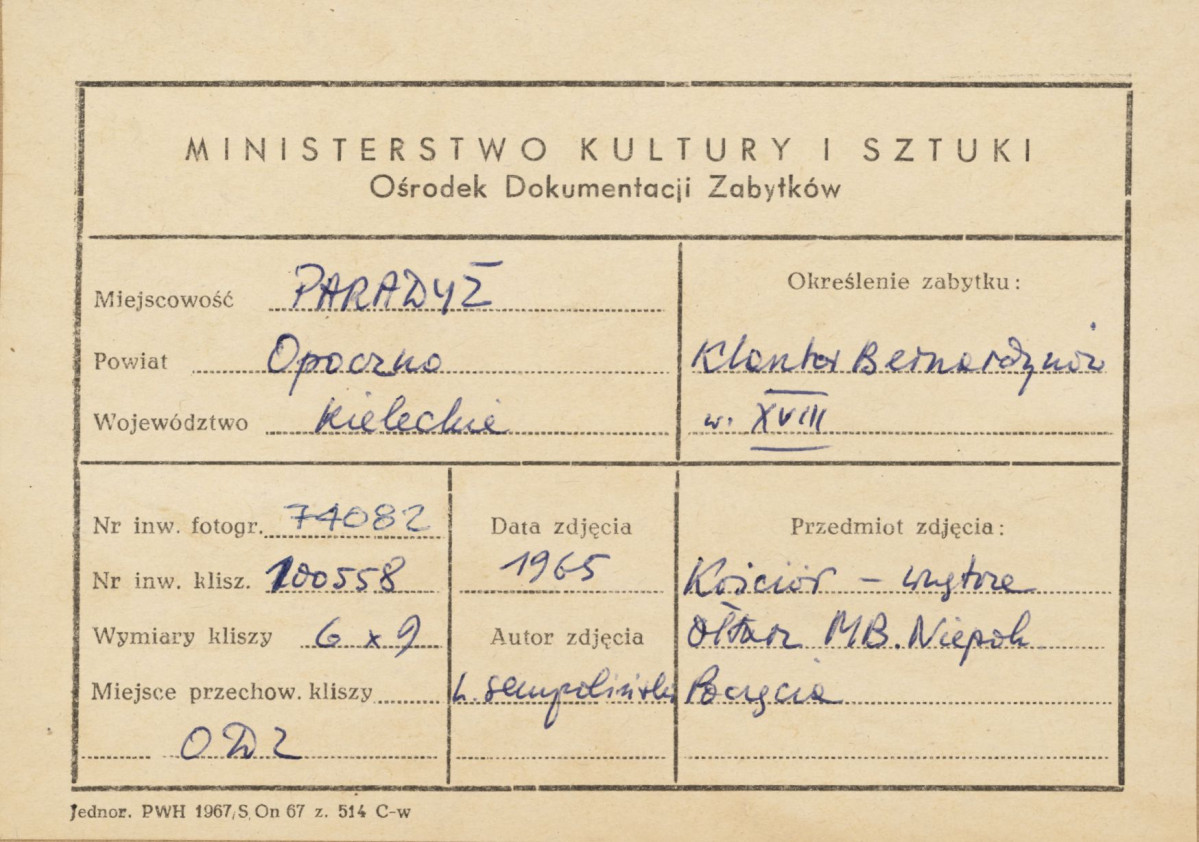 MINISTERSTWO KULTURY I SZTUKI
Ośrodek Dokumentacji Zabytków
Miejscowość PARADYŻ
Powiat Opoczno
Województwo Kieleckie
Określenie zabytku:
Klasztor Bernardynów
w. XVIII
Nr inw. fotogr. 74082
Nr inw. klisz. 100558
Wymiary kliszy 6 x 9
Miejsce przechow. kliszy
ODZ
Data zdjęcia
1965
Autor zdjęcia
L. Sempoliński
Przedmiot zdjęcia:
Kościół – wnętrze
Ołtarz MB. Niepok
Poczęcia
Jednor. PWH 1967/S On 67 z. 514 C-w